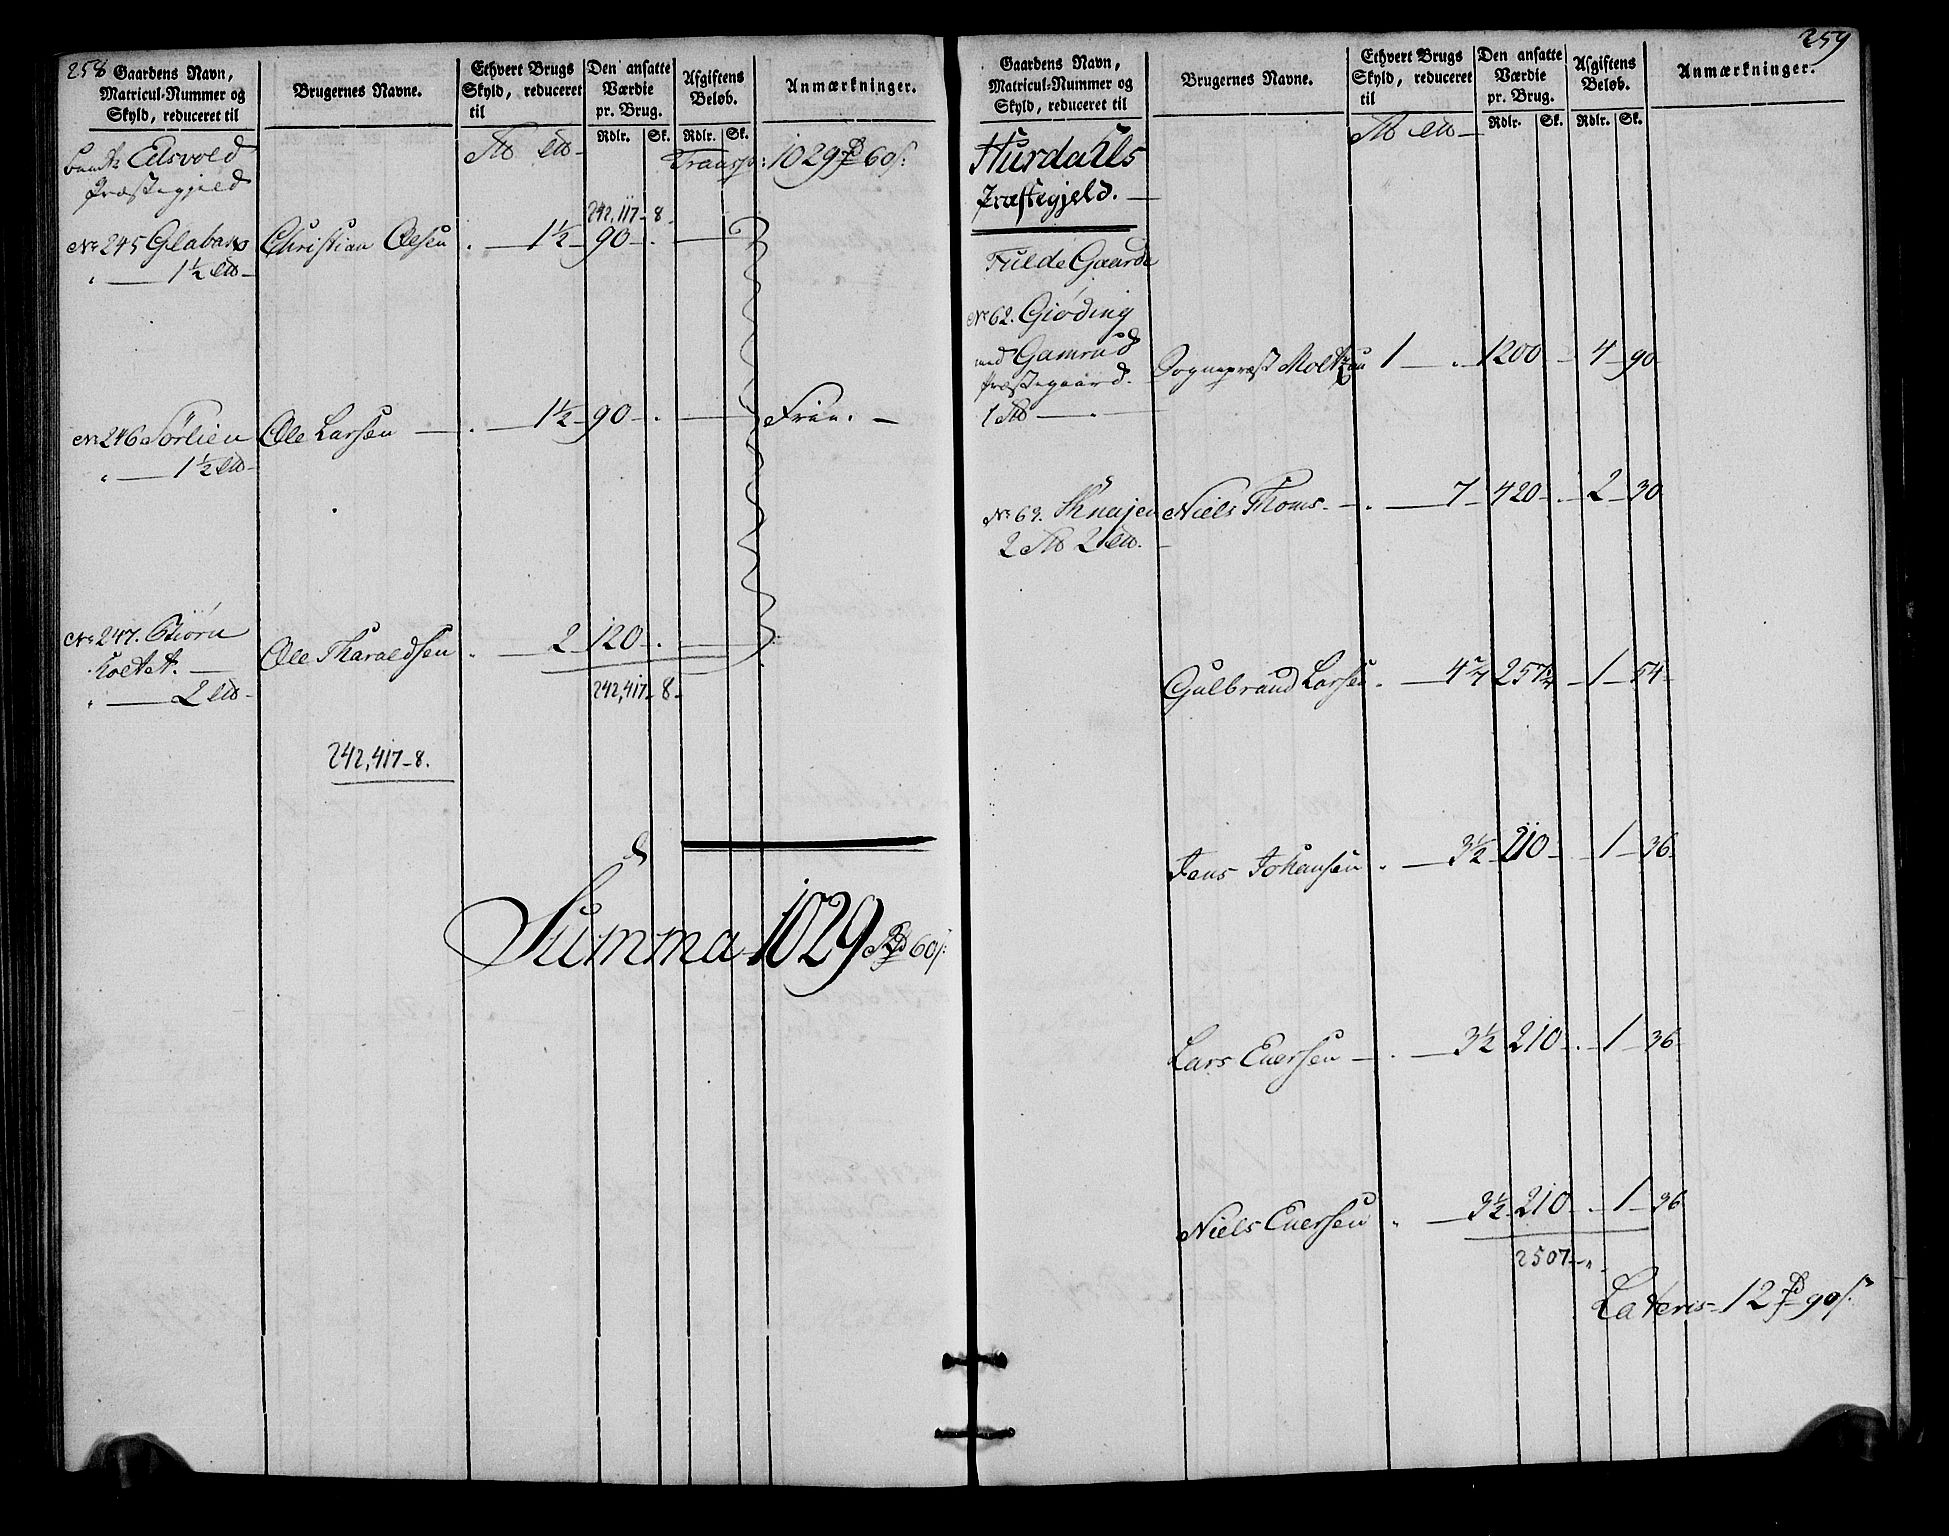 258
Gaardens Navn,
Matricul-Nummer og
Skyld, reduceret til
Brugernes Navne.
Ethvert Brugs
Skyld, reduceret
til
Den ansatte
Værdie
pr. Brug.
Rdlr. Sk.
Afgiftens
Beløb.
Rdlr. Sk.
Anmærkninger.
Edsvold
Præstegjeld
Transp: 1029 60
242,117-8
No 245 Christian Olsen 1½ 90
1½
No 246 Sørlien Ole Larsen 1½ 90 Frie.
1½
No 247. Ole Tharaldsen 2 120
2
242,417-8-
242,417-8.
Summa 1029 60
259
Gaardens Navn,
Matricul-Nummer og
Skyld, reduceret til
Brugernes Navne.
Ethvert Brugs
Skyld, reduceret
til
Den ansatte
Værdie
pr. Brug.
Rdlr. Sk.
Afgiftens
Beløb.
Rdlr. Sk.
Anmærkninger.
Hurdahls
Præstegjeld.
Fulde Gaarde
No 62. Giøding
med Gamrud
Præstegaard. Sognepræst 1 1200 4 90
1
No 63. Niels Thoms 7 420 2 30
2 2
Gulbrand Larsen 1 54
Jens Johansen 3½ 210 1 36
Lars Enersen 3½ 210 1 36
Niels Enersen 3½ 210 1 36
2507
Lateris 12 90